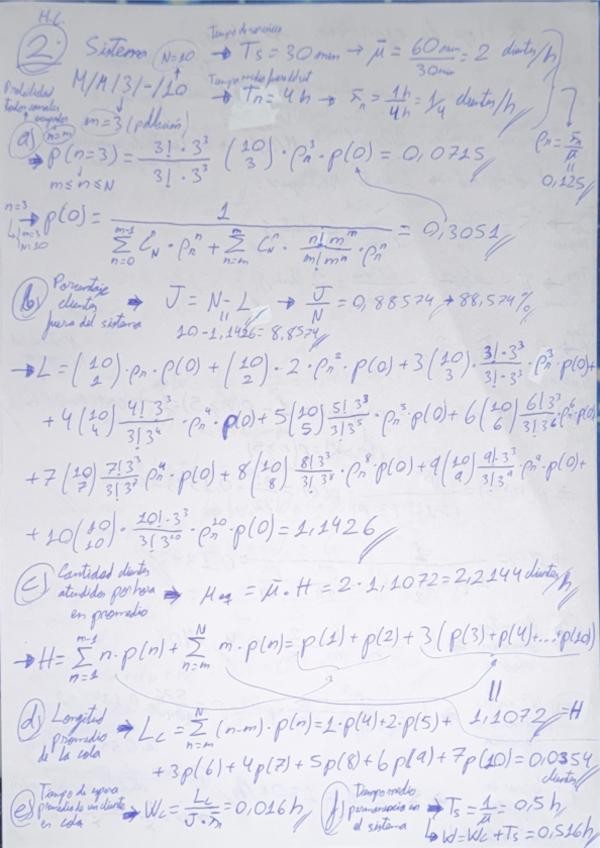 H.C.
2. Sistema N=10 → Tiempo de servicio Ts = 30 min → μ̄ = 60 min / 30 min = 2 clientes/h
M/M/3/-/10 → Tn = 4h → λ̄n = 1h/4h = 1/4 clientes/h
m=3 (población)
ρn = λ̄n/μ̄ = 0,125
Probabilidad todos canales ocupados
a) n=m → p(n=3) = 3!·3³/3!·3³ (10 3)·ρn³·p(0) = 0,0715
m≤n≤N
n=3 m=3 N=10 → p(0) = 1 / (∑ n=0 m-1 Cᴺn·ρnⁿ + ∑ n=m Cᴺn · n! mᵐ/m! mⁿ · ρnⁿ) = 0,3051
b) Porcentaje clientes fuera del sistema → J = N - L → J/N = 0,88574 → 88,574%
10-1,1426=8,8574
→ L = (10 1)·ρn·p(0) + (10 2)·2·ρn²·p(0) + 3(10 3)·3!·3³/3!·3³·ρn³·p(0)+
+ 4(10 4) 4!·3³/3!3⁴·ρn⁴·p(0) + 5(10 5) 5!3³/3!3⁵·ρn⁵·p(0) + 6(10 6) 6!3³/3!3⁶·ρn⁶·p(0)
+ 7(10 7) 7!3³/3!3⁷ ρn⁴·p(0) + 8(10 8) 8!3³/3!3⁸·ρn⁸·p(0) + 9(10 9) 9!·3³/3!3⁹·ρn⁹·p(0)+
+ 10(10 10)·10!·3³/3!3¹⁰·ρn¹⁰·p(0) = 1,1426
c) Cantidad clientes atendidos por hora en promedio → μeq = μ̄·H = 2·1,1072 = 2,2144 clientes/h
→ H = ∑ n=1 m-1 n·p(n) + ∑ n=m N m·p(n) = p(1) + p(2) + 3(p(3)+p(4)+...+p(10))
= 1,1072 = H
d) Longitud promedio de la cola → Lc = ∑ n=m N (n-m)·p(n) = 1·p(4)+2·p(5)+
+ 3p(6) + 4p(7) + 5p(8) + 6p(9) + 7p(10) = 0,0354 clientes
e) Tiempo de espera promedio de un cliente en cola → Wc = Lc/J·λ̄n = 0,016h
f) Tiempo medio permanencia en el sistema → Ts = 1/μ̄ = 0,5h
→ W = Wc + Ts = 0,516h